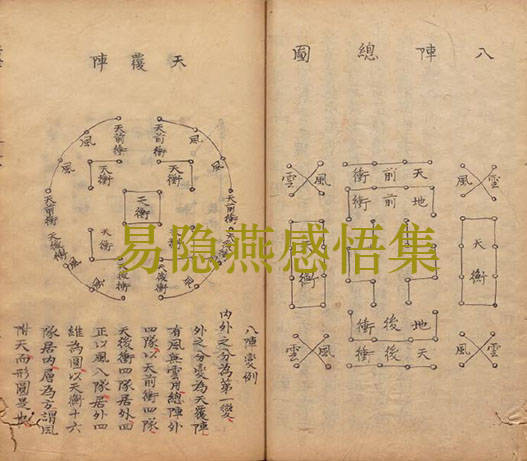 八陣總圖
雲風
天前衝
風雲
地前衝
天衡
衡
地後衝
雲風
天後衝
風雲
天覆陣
天前衝
天前衝
風
風
風
風
天衡
天衡
天衡
天前衝
天前衝
天後衝
天衡
風
風
天後衝
八陣變例
內外之分為第一變
外之分變為天覆陣
有風無雲用總陣外
四隊以天前衝四隊
天後衝四隊居外四
正以風八隊居外四
維為圓以天衡十六
隊居內層為方謂風
附天而形圓是也
易隐燕感悟集